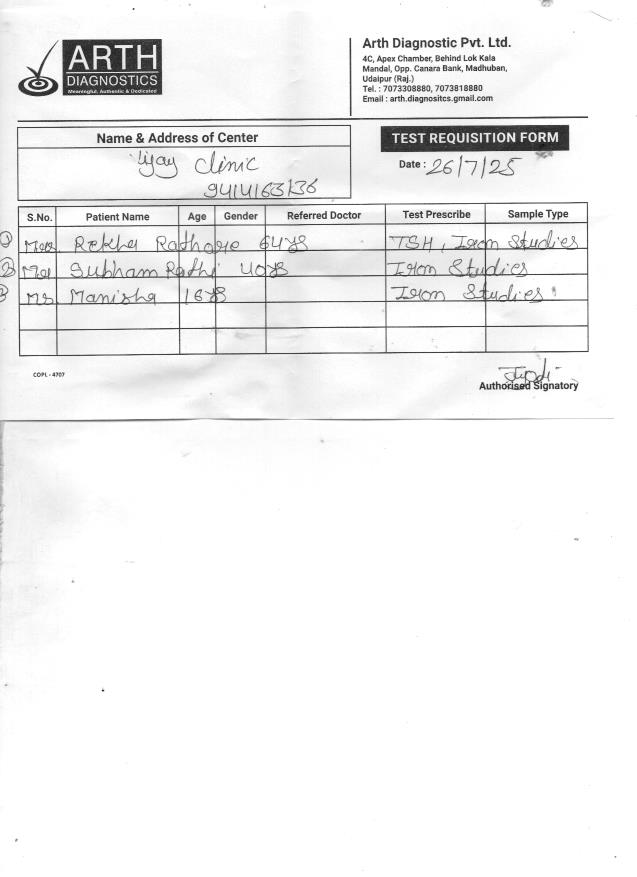 ARTH
DIAGNOSTICS
Meaningful, Authentic & Dedicated
Arth Diagnostic Pvt. Ltd.
4C, Apex Chamber, Behind Lok Kala
Mandal, Opp. Canara Bank, Madhuban,
Udaipur (Raj.)
Tel. : 7073308880, 7073818880
Email : arth.diagnositcs.gmail.com
Name & Address of Center
Vijay Clinic
9414163136
TEST REQUISITION FORM
Date : 26/7/25
S.No. Patient Name Age Gender Referred Doctor Test Prescribe Sample Type
1 Mrs. Rekha Rathore 64 Ys TSH, Iron Studies
2 Mr Subham Rathi 40 Ys Iron Studies
3 Ms. Manisha 16 Ys Iron Studies
COPL - 4707
Authorised Signatory